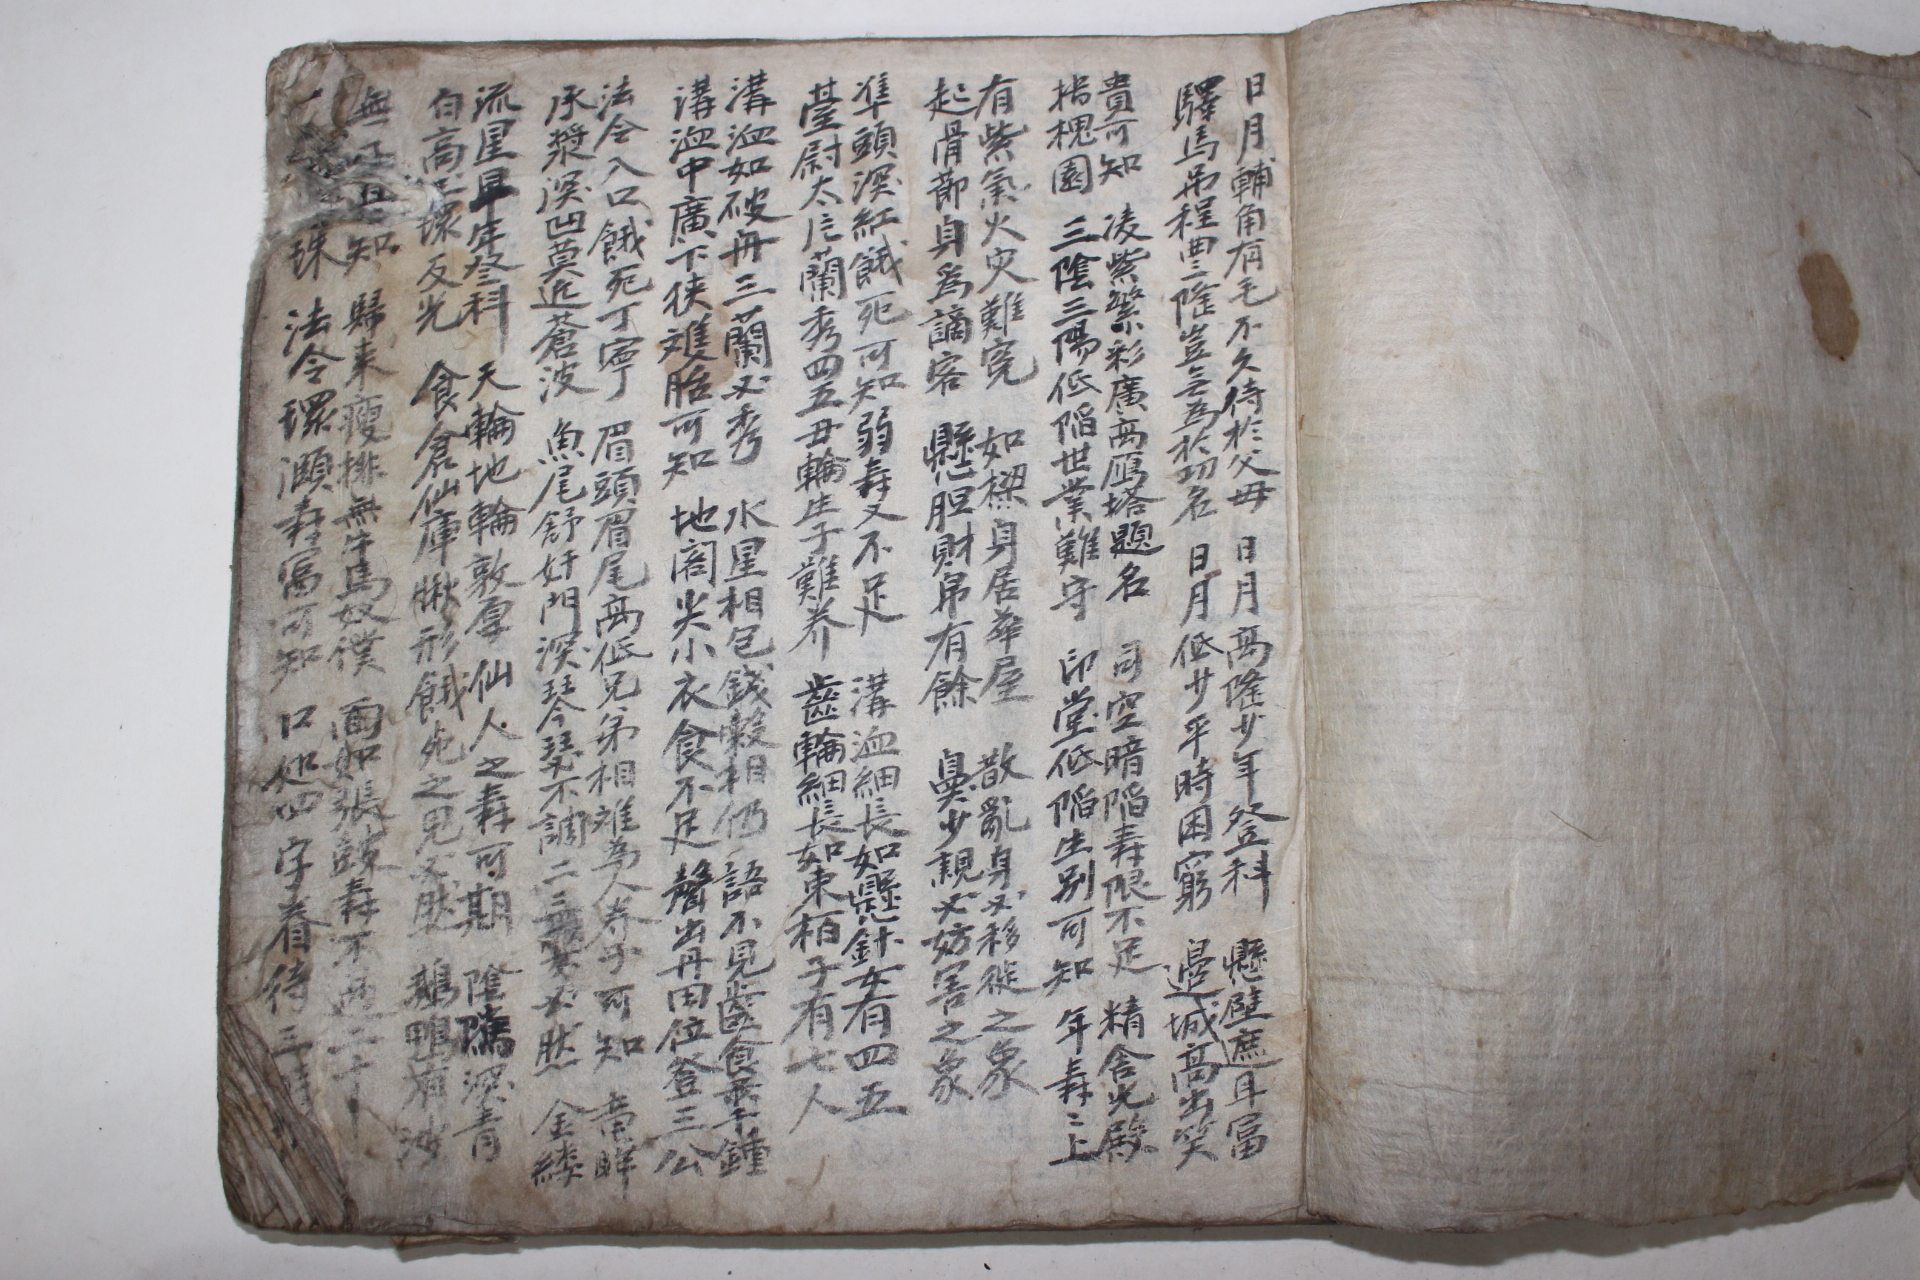 日月輔角有毛不久待於父母 日月高隆少年登科 懸壁遮耳富
驛馬吊程豊隆豈無為於功名 日月低少平時困窮 邉城高出笑
貴可知 凌紫繁彩廣高鴈塔題名 司空暗陷壽限不足 精舍光殿
指槐園 三陰三陽低陷世業難守 印堂低陷生別可知 年壽二上
有紫氣火灾難免 如樑身居華屋 散亂身必移徙之象
起骨莭身爲謫客 懸胆財帛有餘 鼻少親必妨害之象
準頭深紅餓死可知弱壽又不足 溝洫細長如懸針女有四五
䑓尉太片蘭秀四五丑輪生子難养 齒輪細長如東栢子有七人
溝洫如破舟三蘭必秀 水星相包錢穀相仍 語不見齒食千鍾
溝洫中廣下狹䨇胎可知 地閣尖小衣食不足 聲出丹田位登三公
法令入口餓死丁寧 眉頭眉尾高低兄弟相離為人养子可知 竜眸
承漿深凹莫近蒼波 魚尾舒奸門深琴瑟不調二三娶必然 金縷
流星早年登科 天輪地輪敦厚 仙人之壽可期 陰隲深青
白高環反光 食倉仙庫瘷形餓死之兒必然 鵝鴨有沙
無 且知 歸来瘦排無牛馬奴僕 面如張皷壽不過二十
珠 法令環瀕壽富可知 口如四字春待三